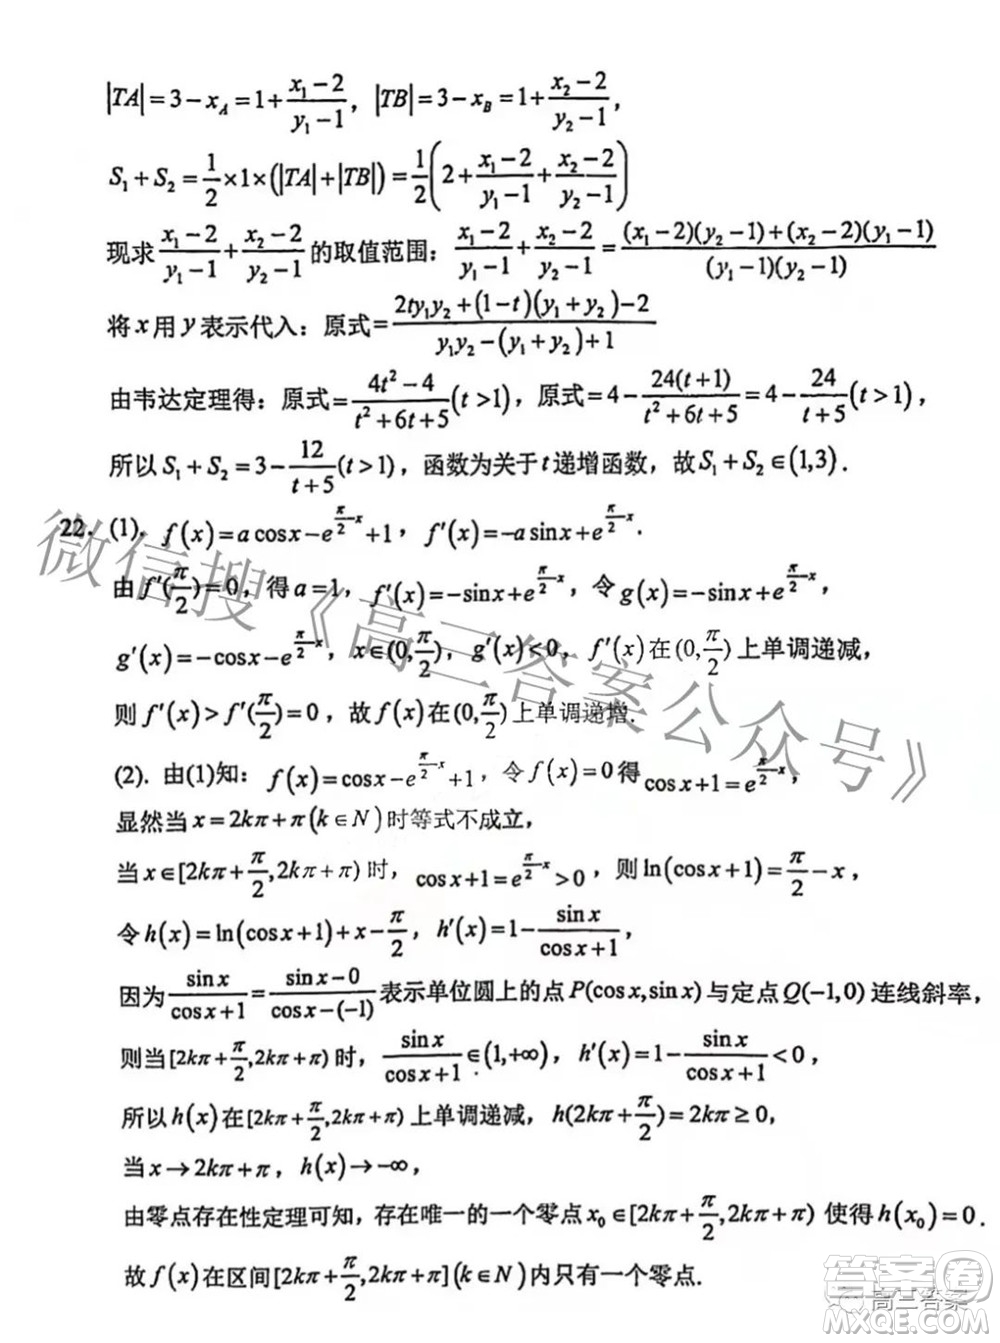 |TA|=3-x_A=1+\frac{x_1-2}{y_1-1}, |TB|=3-x_B=1+\frac{x_2-2}{y_2-1},
S_1+S_2=\frac{1}{2}×1×(|TA|+|TB|)=\frac{1}{2}(2+\frac{x_1-2}{y_1-1}+\frac{x_2-2}{y_2-1})
现求\frac{x_1-2}{y_1-1}+\frac{x_2-2}{y_2-1}的取值范围：\frac{x_1-2}{y_1-1}+\frac{x_2-2}{y_2-1}=\frac{(x_1-2)(y_2-1)+(x_2-2)(y_1-1)}{(y_1-1)(y_2-1)}
将x用y表示代入：原式=\frac{2ty_1y_2+(1-t)(y_1+y_2)-2}{y_1y_2-(y_1+y_2)+1}
由韦达定理得：原式=\frac{4t^2-4}{t^2+6t+5}(t>1)，原式=4-\frac{24(t+1)}{t^2+6t+5}=4-\frac{24}{t+5}(t>1)，
所以S_1+S_2=3-\frac{12}{t+5}(t>1)，函数为关于t递增函数，故S_1+S_2∈(1,3).
22. (1). f(x)=a cosx-e^{\frac{π}{2}-x}+1，f'(x)=-a sinx+e^{\frac{π}{2}-x}.
由f'(\frac{π}{2})=0，得a=1，f'(x)=-sinx+e^{\frac{π}{2}-x}，令g(x)=-sinx+e^{\frac{π}{2}-x}，
g'(x)=-cosx-e^{\frac{π}{2}-x}，x∈(0,\frac{π}{2})，g'(x)<0，f'(x)在(0,\frac{π}{2})上单调递减，
则f'(x)>f'(\frac{π}{2})=0，故f(x)在(0,\frac{π}{2})上单调递增.
(2). 由(1)知：f(x)=cosx-e^{\frac{π}{2}-x}+1，令f(x)=0得cosx+1=e^{\frac{π}{2}-x}，
显然当x=2kπ+π(k∈N)时等式不成立，
当x∈[2kπ+\frac{π}{2},2kπ+π)时，cosx+1=e^{\frac{π}{2}-x}>0，则ln(cosx+1)=\frac{π}{2}-x，
令h(x)=ln(cosx+1)+x-\frac{π}{2}，h'(x)=1-\frac{sinx}{cosx+1}，
因为\frac{sinx}{cosx+1}=\frac{sinx-0}{cosx-(-1)}表示单位圆上的点P(cosx,sinx)与定点Q(-1,0)连线斜率，
则当[2kπ+\frac{π}{2},2kπ+π)时，\frac{sinx}{cosx+1}∈(1,+∞)，h'(x)=1-\frac{sinx}{cosx+1}<0，
所以h(x)在[2kπ+\frac{π}{2},2kπ+π)上单调递减，h(2kπ+\frac{π}{2})=2kπ≥0，
当x→2kπ+π，h(x)→-∞，
由零点存在性定理可知，存在唯一的一个零点x_0∈[2kπ+\frac{π}{2},2kπ+π)使得h(x_0)=0.
故f(x)在区间[2kπ+\frac{π}{2},2kπ+π](k∈N)内只有一个零点.
微信搜《高三答案公众号》
答案卷
高三答案
MXQE.COM